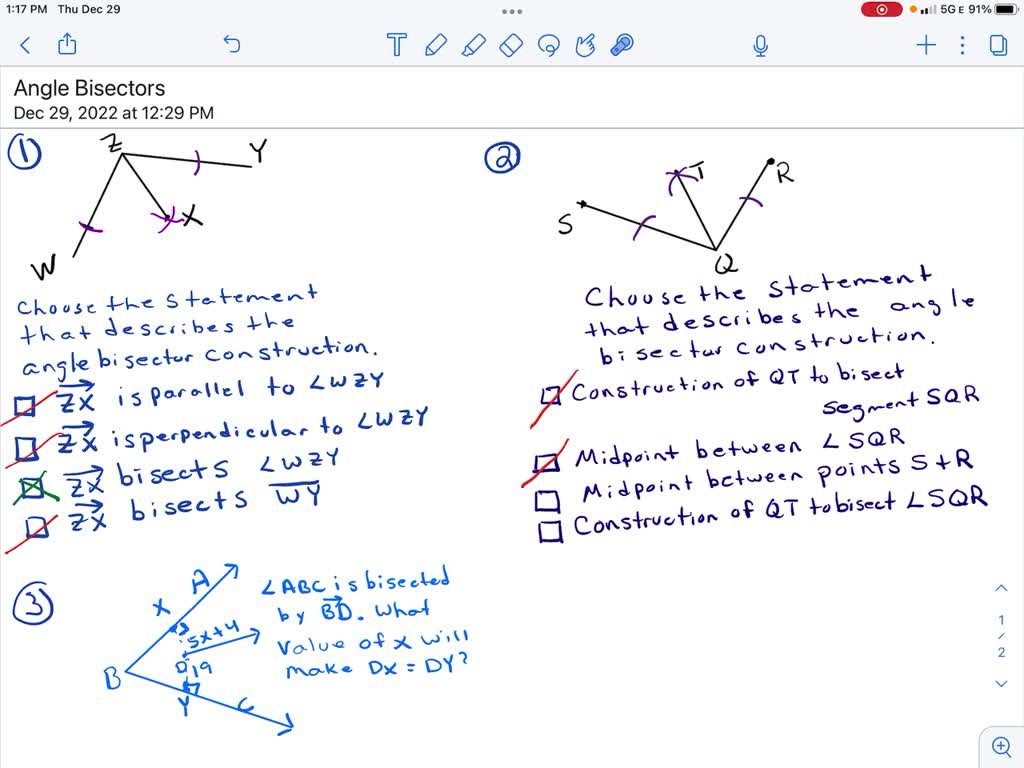 1:17 PM Thu Dec 29
5G E 91%
T
Angle Bisectors
Dec 29, 2022 at 12:29 PM
1
Z
Y
X
W
Choose the statement
that describes the
angle bisector construction.
ZX is parallel to ∠WZY
ZX is perpendicular to ∠WZY
ZX bisects ∠WZY
ZX bisects WY
2
T
R
S
Q
Choose the statement
that describes the angle
bisector construction.
Construction of QT to bisect
segment SQR
Midpoint between ∠SQR
Midpoint between points S + R
Construction of QT to bisect ∠SQR
3
A
X
5x+4
D
19
B
Y
C
∠ABC is bisected
by BD. What
value of x will
make DX = DY?
1
/
2